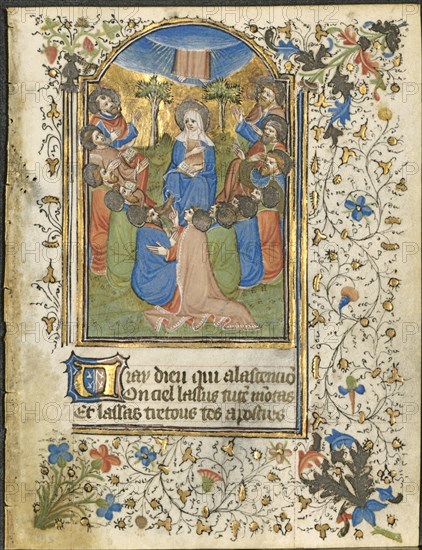 Uray dieu qui alascencio
On ciel lassus tute montas
Et lassas trestous tes apostres